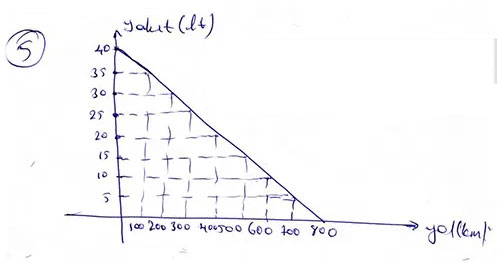 5
yakıt (lt)
40
35
30
25
20
15
10
5
100 200 300 400 500 600 700 800
yol (km)